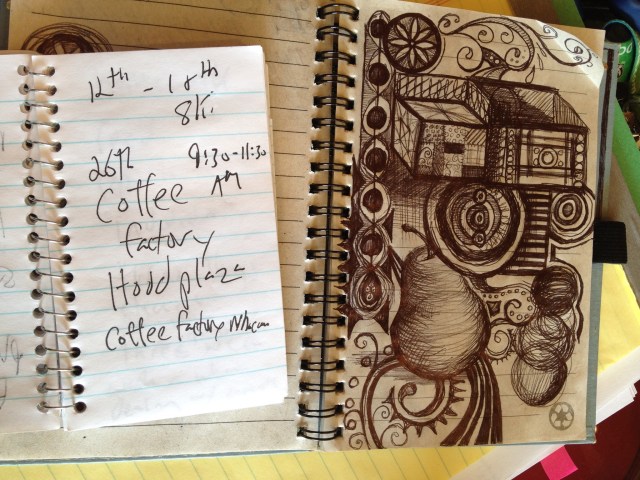 12th - 18th
8Ki
26th 9:30-11:30
AM
Coffee
factory
Hood plaza
Coffee factory